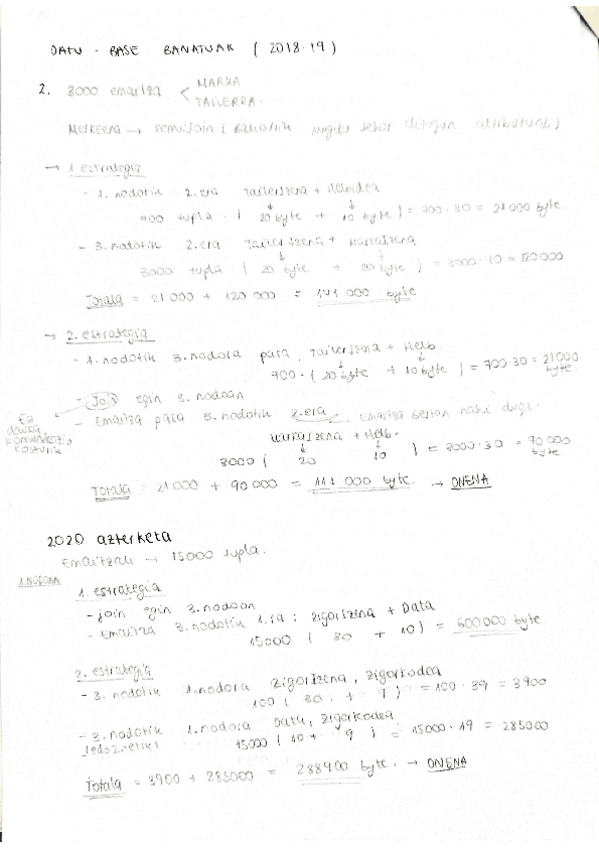 DATU - BASE BANATUAK ( 2018-19 )
2. 3000 emaitza < MARKA
TAILERRA.
MERKEENA → semijoin ( bakarrik mugitu behar ditugun atributuak )
→ 1 estrategia
- 1. nodotik 2.era TailerIzena + Helbidea
700 tupla · ( 20 byte + 10 byte ) = 700 · 30 = 21000 byte.
- 3. nodotik 2.era TailerIzena + MarkaIzena
3000 tupla · ( 20 byte + 20 byte ) = 3000 · 40 = 120000
Totala = 21 000 + 120 000 = 141 000 byte
→ 2. estrategia
- 1. nodotik 3. nodora pasa, TailerIzena + Helb.
700 · ( 20 byte + 10 byte ) = 700·30 = 21000 byte.
- Join egin 3. nodoan
Ez dauka komunikazio kosturik
- Emaitza pasa 3. nodotik 2.era emaitza bertan nahi dugu.
MarkaIzena + Helb.
3000 ( 20 10 ) = 3000 · 30 = 90 000 byte
Totala = 21 000 + 90 000 = 111 000 byte. → ONENA
2020 azterketa
Emaitzak → 15000 tupla.
1.NODORA
1. estrategia
- join egin 3. nodoan
- Emaitza 3. nodotik 1.ra : ZigorIzena + Data
15000 ( 30 + 10 ) = 600000 byte
2. estrategia
- 3. nodotik 1. nodora ZigorIzena, Zigorkodea
100 ( 30 + 9 ) = 100 · 39 = 3900
- 3. nodotik 1. nodora Data, Zigorkodea
(edo 2.etik) 15000 ( 10 + 9 ) = 15000 · 19 = 285000
Totala = 3900 + 285000 = 288900 byte. → ONENA